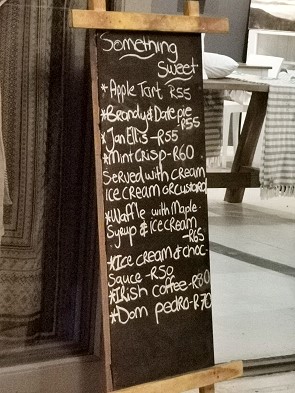 Something
Sweet
*Apple Tart R55
*Brandy & Date pie
-R55
*Jan Ellis - R55
*Mint Crisp - R60
Served with cream
ice cream or custard
*Waffle with Maple
Syrup & ice cream
-R65
*Ice cream & choc-
Sauce - R50
*Irish coffee - R80
*Dom pedro - R70